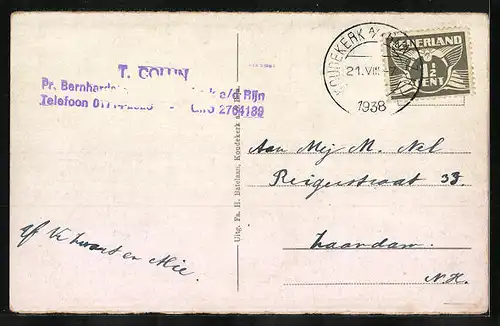 T. COLIJN
Pr. Bernhard
a/d Rijn
Telefoon 01714-2525 - Giro 2764189
KOUDEKERK A/D RIJN
21.VIII
1938
NEDERLAND
1½
CENT
Uitg. Fa. H. Batelaan, Koudekerk
Aan Mej M. Nel
Reigerstraat 33
Zaandam.
N.H.
afz
en Mie.